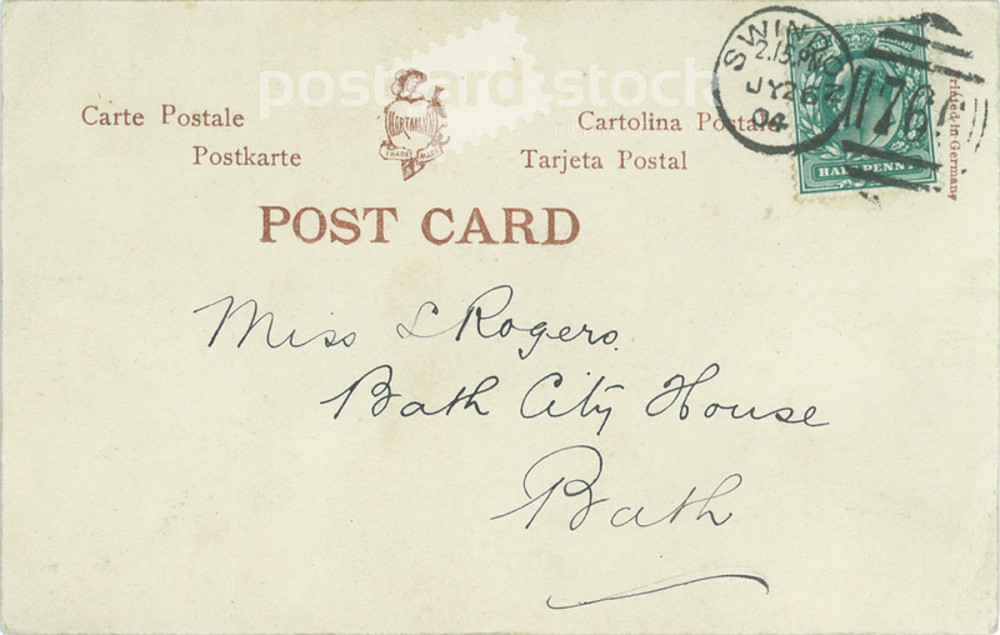 postcard.stock
Carte Postale
Postkarte
HARTMANN
TRADE MARK
Cartolina Postale
Tarjeta Postal
POST CARD
SWINDO
2.15 PM
JY 26
04
HALFPENNY
Printed in Germany
Miss L Rogers.
Bath City House
Bath